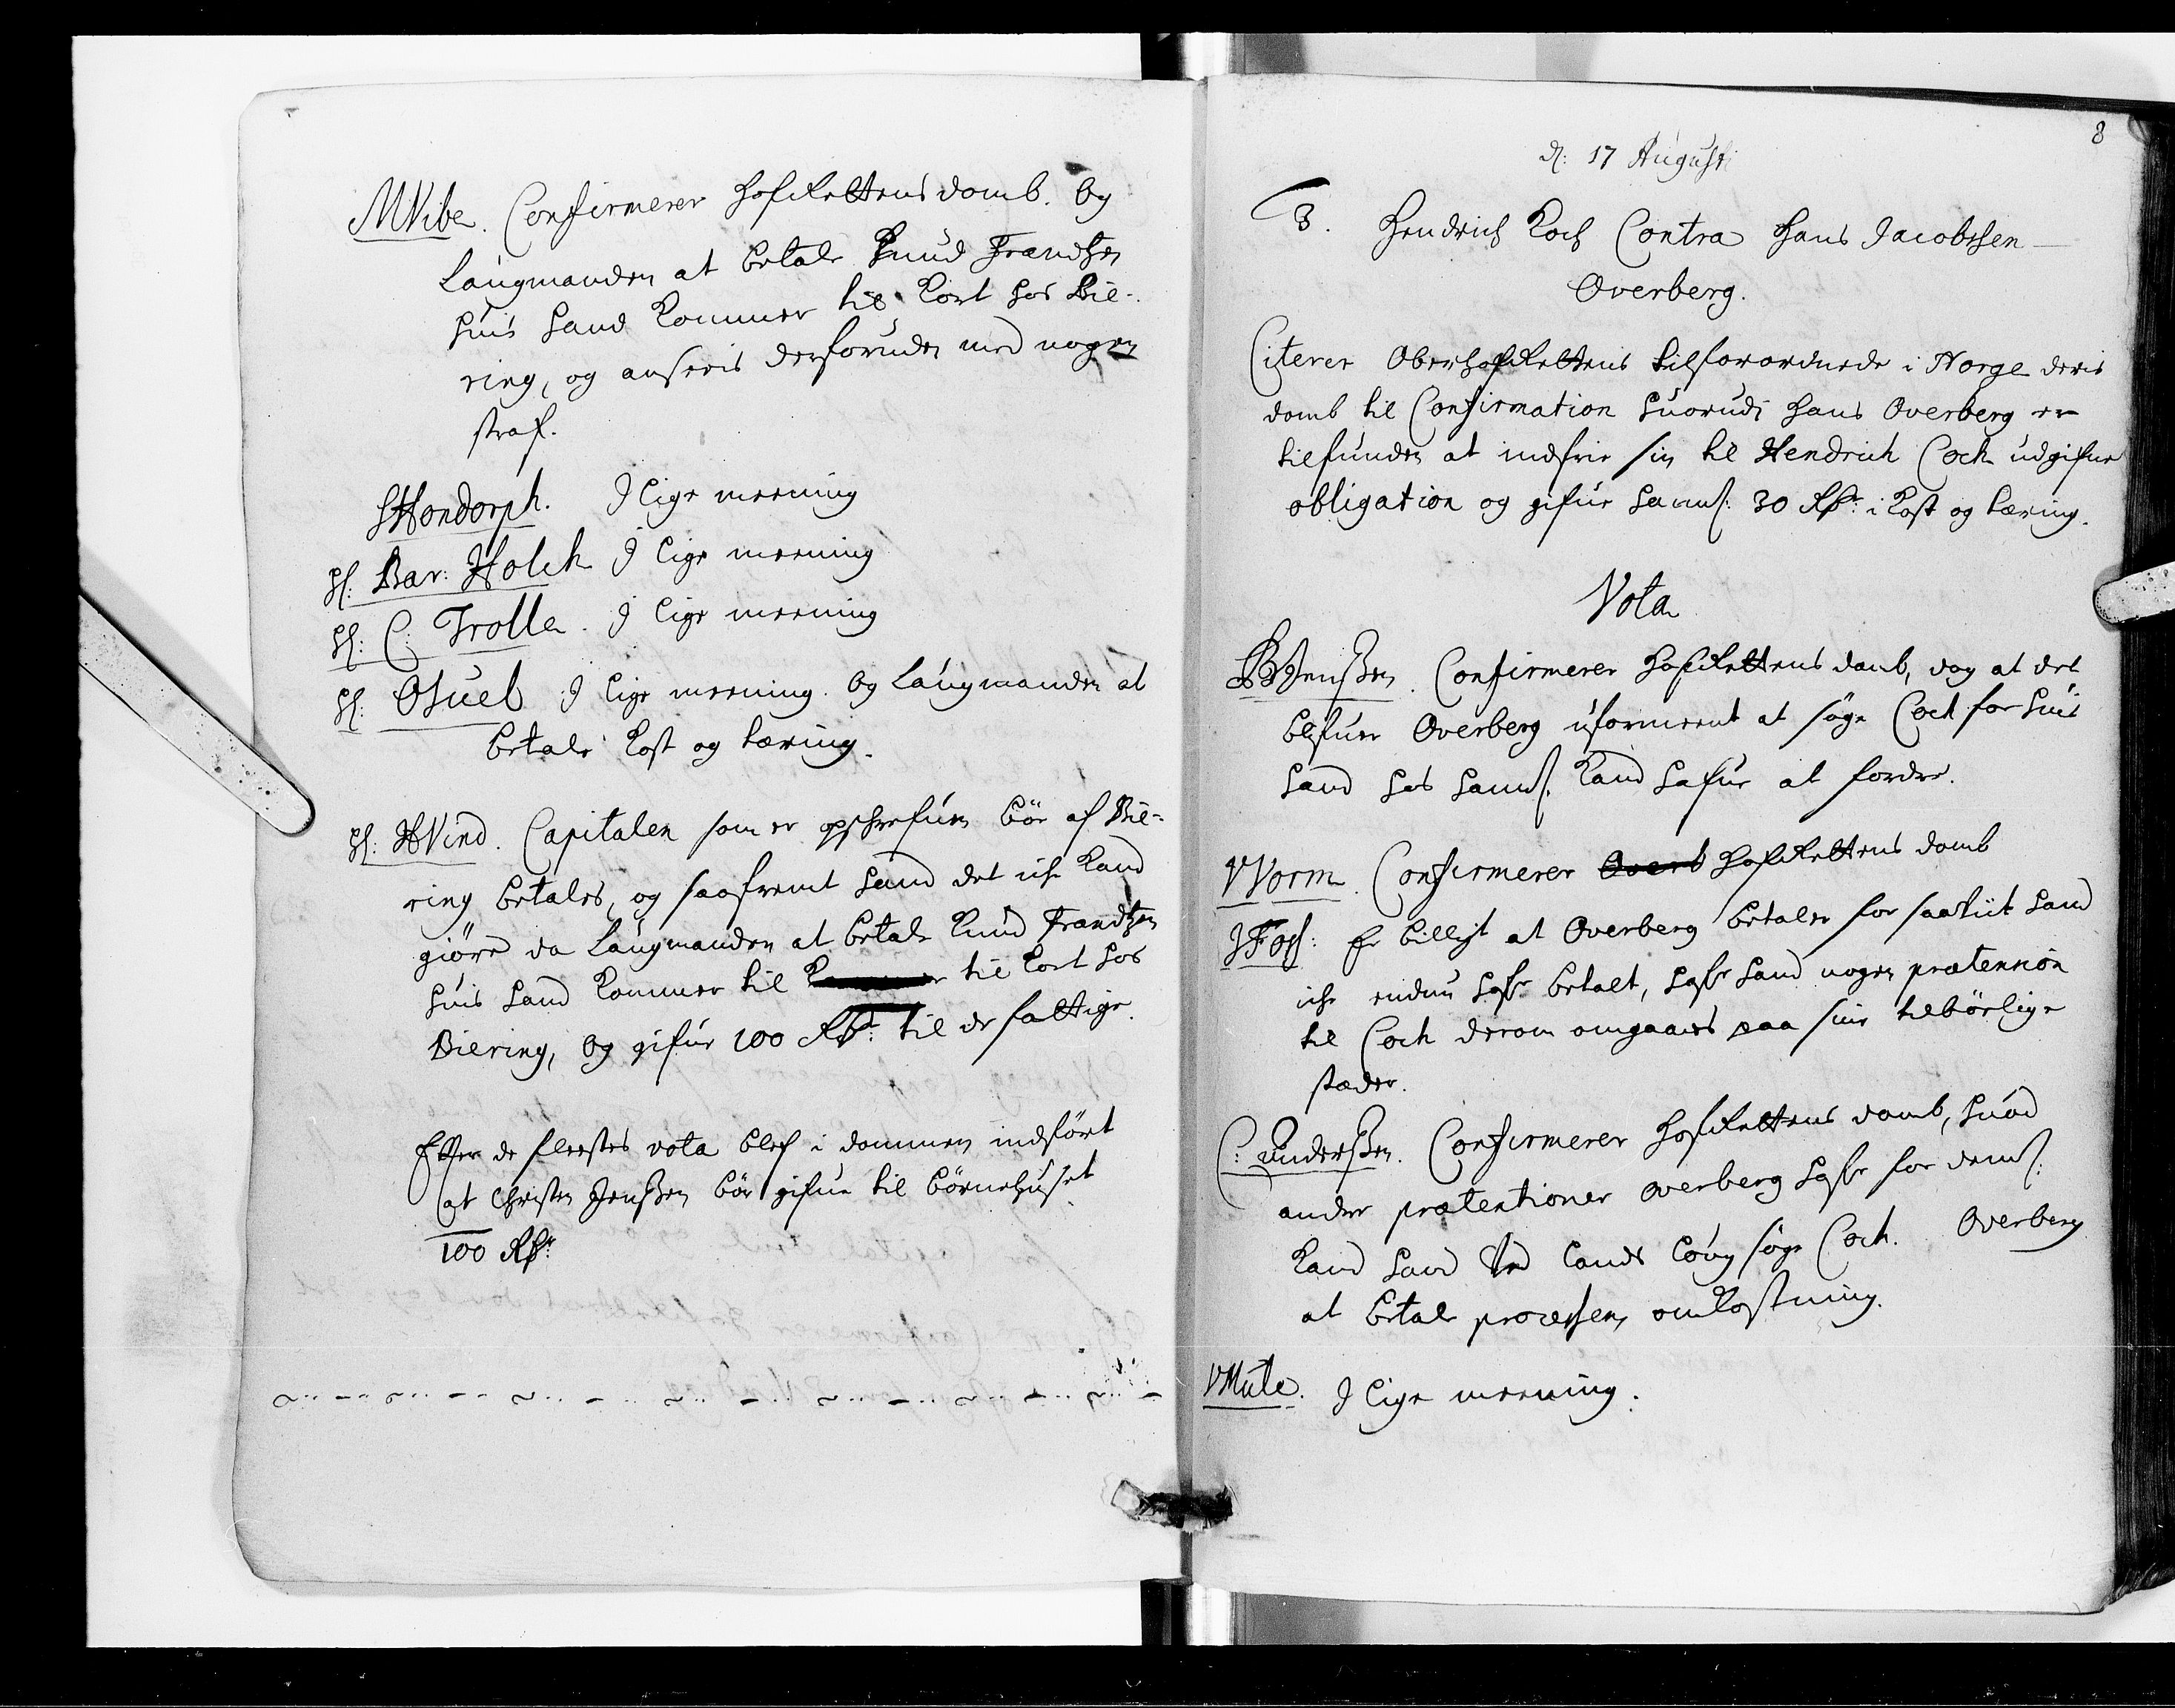 MVibe. Confirmerer HofRettens domb. Og
Laugmanden at betale Knud Frandtzen
huis hand kommer til kort hos Bie-
ring, og ansees desforuden med nogen
straf.
SHondorph. I lige meening
H: Bar: Holck I lige meening
H: C: Trolle. I lige meening
H: OJuel I lige meening. Og Laugmanden at
betale kost og tæring.
H: HVind. Capitalen som er opskrefuen bör af Bie-
ring betales, og saafremt hand det iche kand
giöre da Laugmanden at betale Knud Frandtzen
huis hand kommer til til kort hos
Biering, Og gifue 100 Rdr: til de fattige.
Efter de fleestes vota blef i dommen indfört
at Christen Jenssen bör gifue til börnehuset
100 Rdr:
8
d: 17 Augusti
3. Hendrich Koch Contra Hans Jacobsen
Overberg.
Citerer OberhofRettens tilforordnede i Norge deris
domb til Confirmation huorudi Hans Overberg er
tilfunden at indfrie sin til Hendrich Coch udgifne
obligation og gifue hannem 30 Rdr: i kost og tæring.
Vota
BJenssen. Confirmerer HofRettens domb, dog at det
blifuer Overberg uformeent at söge Coch for huis
hand hos hannem kand hafue at fordre.
VWorm. Confirmerer Overb HofRettens domb
JFos: Er billigt at Overberg betaler for saavit hand
iche endnu hafr betalt, hafr hand nogen prætension
til Coch derom omgaaes paa sine tilbörlige
stæder.
C: Anderssen. Confirmerer HofRettens domb, huad
andre prætentioner Overberg hafr for dem:
kand hand ved lands loug söge Coch. Overberg
at betale processens omkostning.
VMule. I lige meening.